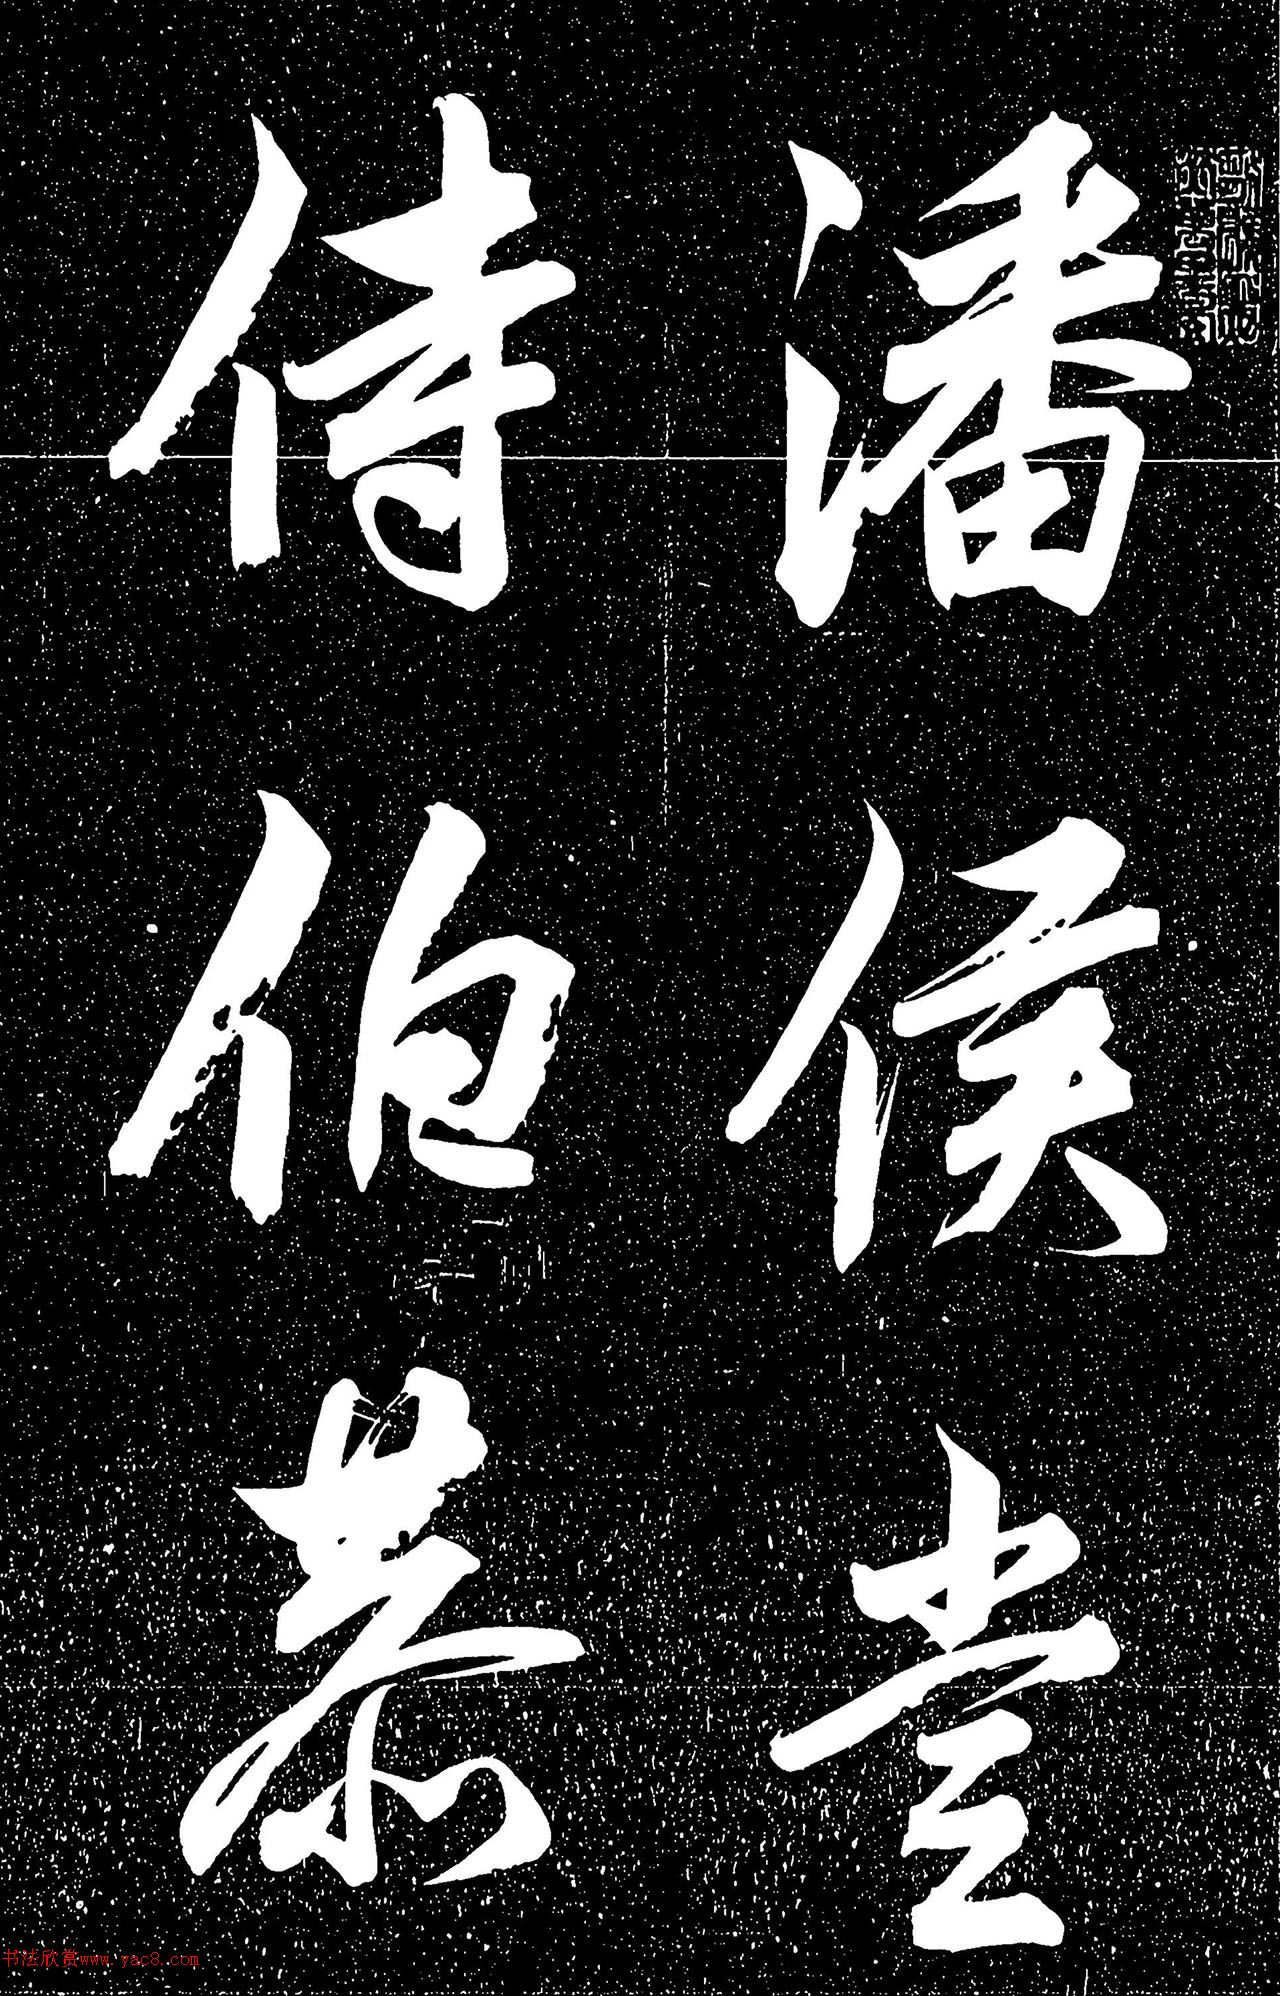 潘侯堂
侍伯恭
书法欣赏www.yac8.com